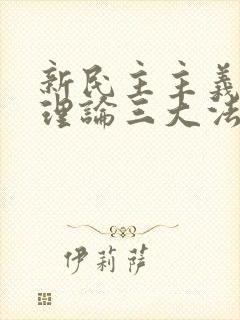 新民主主義
理論三大法
伊莉薩